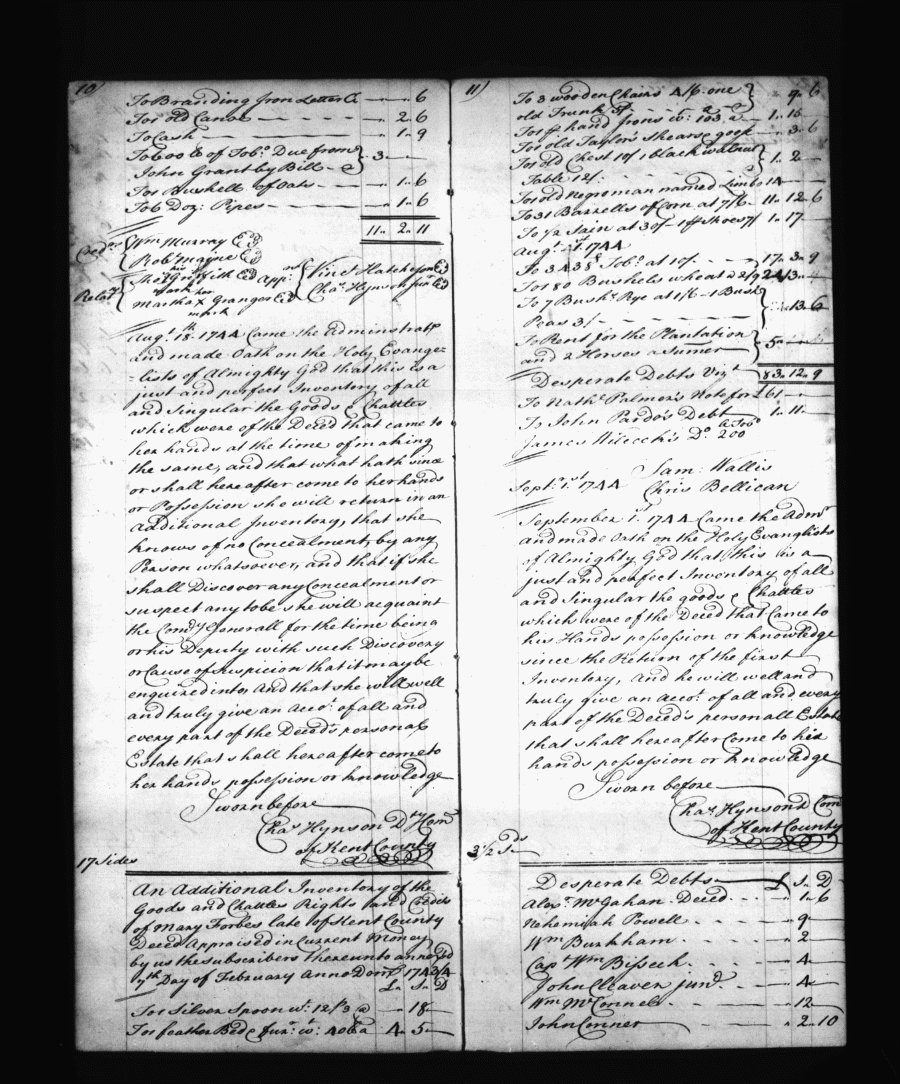 10
To Branding Iron Letter C — 6
For old Canoe — 2 .. 6
To Cash — 1 .. 9
To 600 lb of Tobo. Due from
John Grant by Bill — 3
For Bushell of Oats — 1 .. 6
To 6 Doz: Pipes — 1 .. 6
11 .. 2 .. 11
Wm Murray
Robt Mayne
his
Thos Griffith
mark her
Martha X Granger
mark
Vinct Hatcheson
Chas. Hynson Junr
Augt. 18th 1744 Came the Administratx
and made Oath on the Holy Evange=
=lists of Almighty God that this is a
just and perfect Inventory of all
and Singular the Goods & Chattles
which were of the Deced that came to
her hands at the time of making
the same, and that what hath since
or shall hereafter come to her hands
or Possession she will return in an
Additional Inventory, that she
knows of no Concealment, by any
Person whatsoever, and that if she
shall Discover any Concealment or
suspect any to be she will acquaint
the Comry Generall for the time being
or his Deputy with such Discovery
or Cause of Suspicion that it may be
enquired into, And that she will well
and truly give an Acco.t of all and
every part of the Deced's personal
Estate that shall hereafter come to
her hands possession or knowledge
Sworn before
Chas Hynson Dty Com
of Kent County
17 Sides
An Additional Inventory of the
Goods and Chattles Rights and Credits
of Mary Forbes late of Kent County
Deced Appraised in Current Money
by us the subscribers thereunto
7th Day of February Anno Dom 1743/4
£ S D
For Silver Spoon wt. 12/3 @ — 18
For feather Bed & furt. wt. 40 lb a 4 .. 5
11
To 3 wooden Chairs 4/6 one
old Trunk — 9 .. 6
To pr hand Irons wt: 103 a — 1 .. 15
For old Taylor's Shears & goose — 3 .. 6
For old Chest 10/ 1 black walnut
Table 12/ — 1 .. 2
For old Negro man named Limbo 1
To 31 Barrells of Corn at 7/6 11 .. 12 .. 6
Augt. 1st. 1744
To 3438 Tobo. at 10/ — 17 .. 3 .. 9
For 180 Bushels wheat a 2/9 24
To 7 Bushs. Rye at 1/6 1 Bush
Peas 3/ — 13 .. 6
To Rent for the Plantation
and 2 Horses a Sumer — 5
83 .. 12 .. 9
Desperate Debts Vizt
To Nathl Palmer's Note for £6
To John Pardo's Debt — 1 .. 11
James Wilcocks Do 200 Tobo
Sam: Wallis
Septr. 1st. 1744 Chris Bellican
September 1st. 1744 Came the Admr
and made Oath on the Holy Evanglists
of Almighty God that this is a
just and perfect Inventory of all
and Singular the goods & Chattles
which were of the Deced that Came to
his Hands possession or knowledge
since the Return of the first
Inventory, And he will well and
truly give an Acco.t of all and every
part of the Deced's personall Estate
that shall hereafter Come to his
hands possession or knowledge
Sworn before
Chas. Hynson D Com
of Kent County
3 1/2 Ds
Desperate Debts — £ S D
Alexr. McGahan Deced — 1 .. 6
Nehemiah Powell — 9
Wm Burkham — 2
Capt Wm Bisseck — 4
John Cleaver junr. — 4
Wm McConnel — 12
John Conner — 2 .. 10